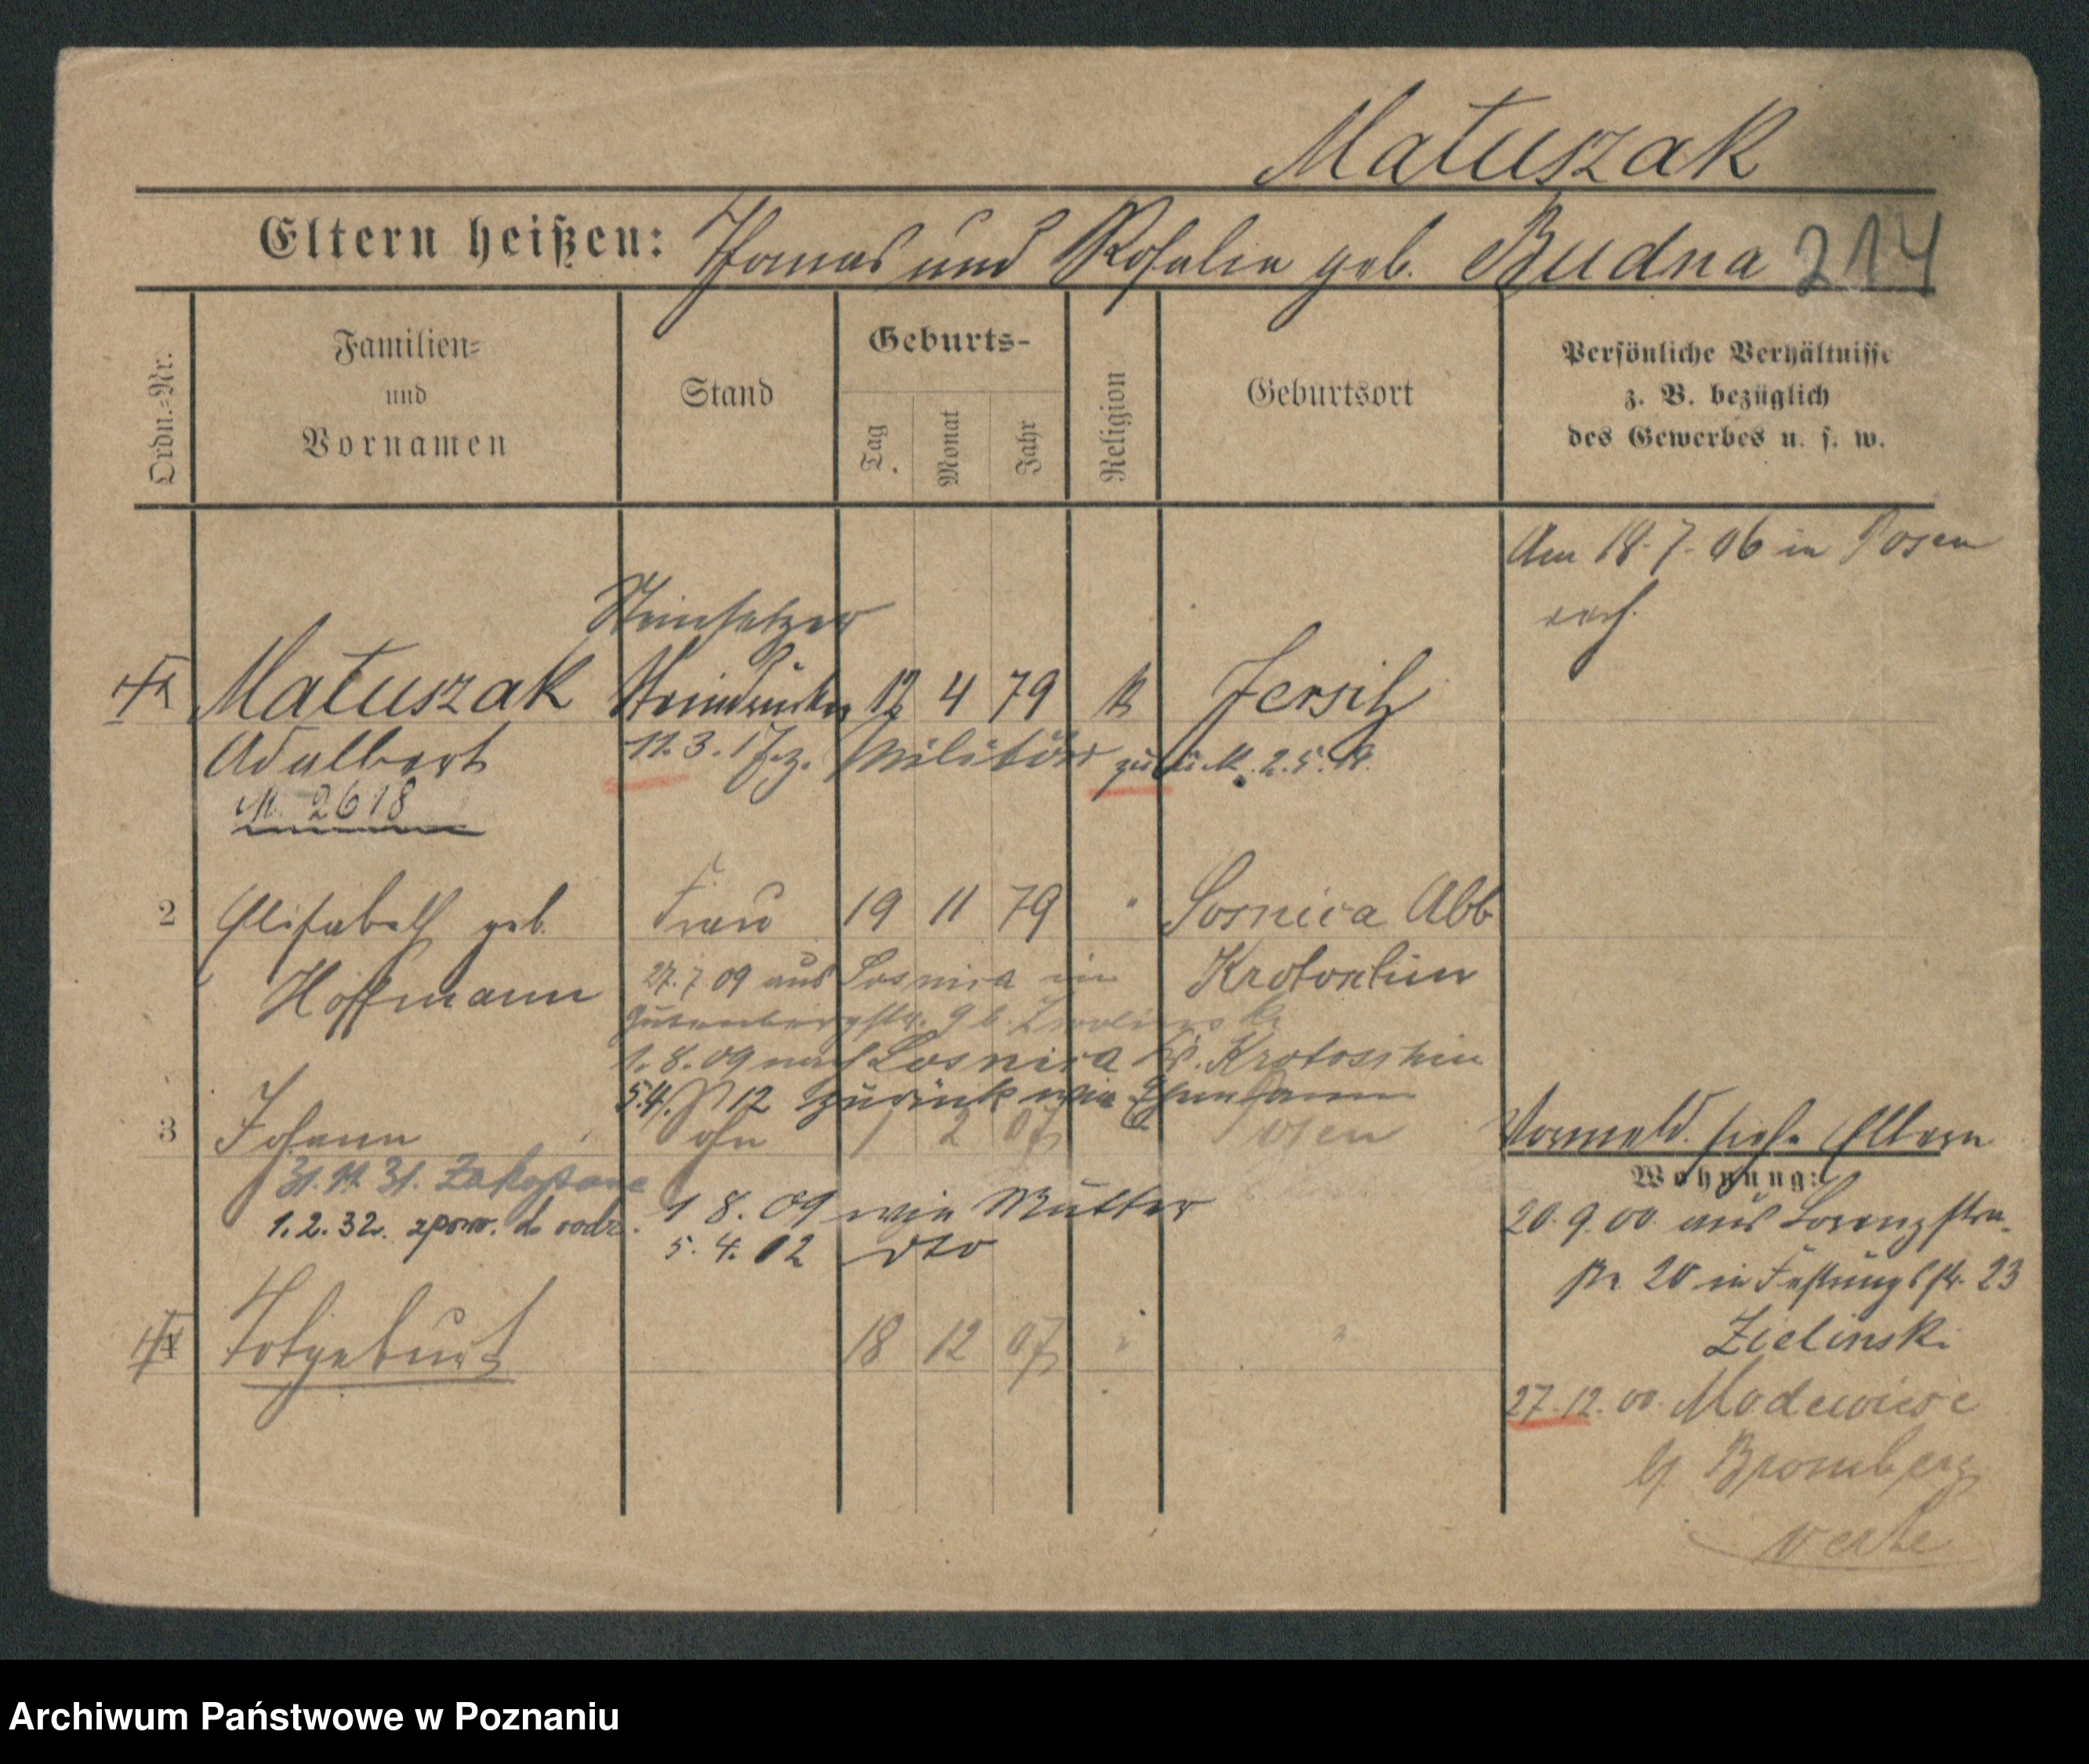 Matuszak
Eltern heißen: Thomas und Rosalia geb. Budna 214
Ordn.=Nr.
Familien=
und
Vornamen
Stand
Geburts-
Tag
Monat
Jahr
Religion
Geburtsort
Persönliche Verhältnisse
z. B. bezüglich
des Gewerbes u. s. w.
Am 18.7.06 in Posen
verh.
Steinsetzer
Matuszak 12 4 79 K Jersitz
Adalbert 11.3.17 z. Militär zurück. 2.5.
M. 2618
2 Elisabeth geb. Frau 19 11 79 " Sosnica Abb
Hoffmann Krotoschin
27.7 09 aus Sosnica in
Gutenbergstr. 9 b.
1.8.09 nach Sosnica Kr. Krotoschin
5.4. 12 zurück wie Ehemann
3 Johann Sohn 1 2 07 " Posen
31. 31. Zakopane
1.2.32. do rodz.
1 8.09 wie Mutter
5.4.12 dto
Totgeburt 18 12 07 " "
Vormeld. siehe Eltern
Wohnung:
20.9.00 aus Lorenzstra-
ße 20 in Festungsstr. 23
Zielinski
27.12.00
b/ Bromberg
verte
Archiwum Państwowe w Poznaniu